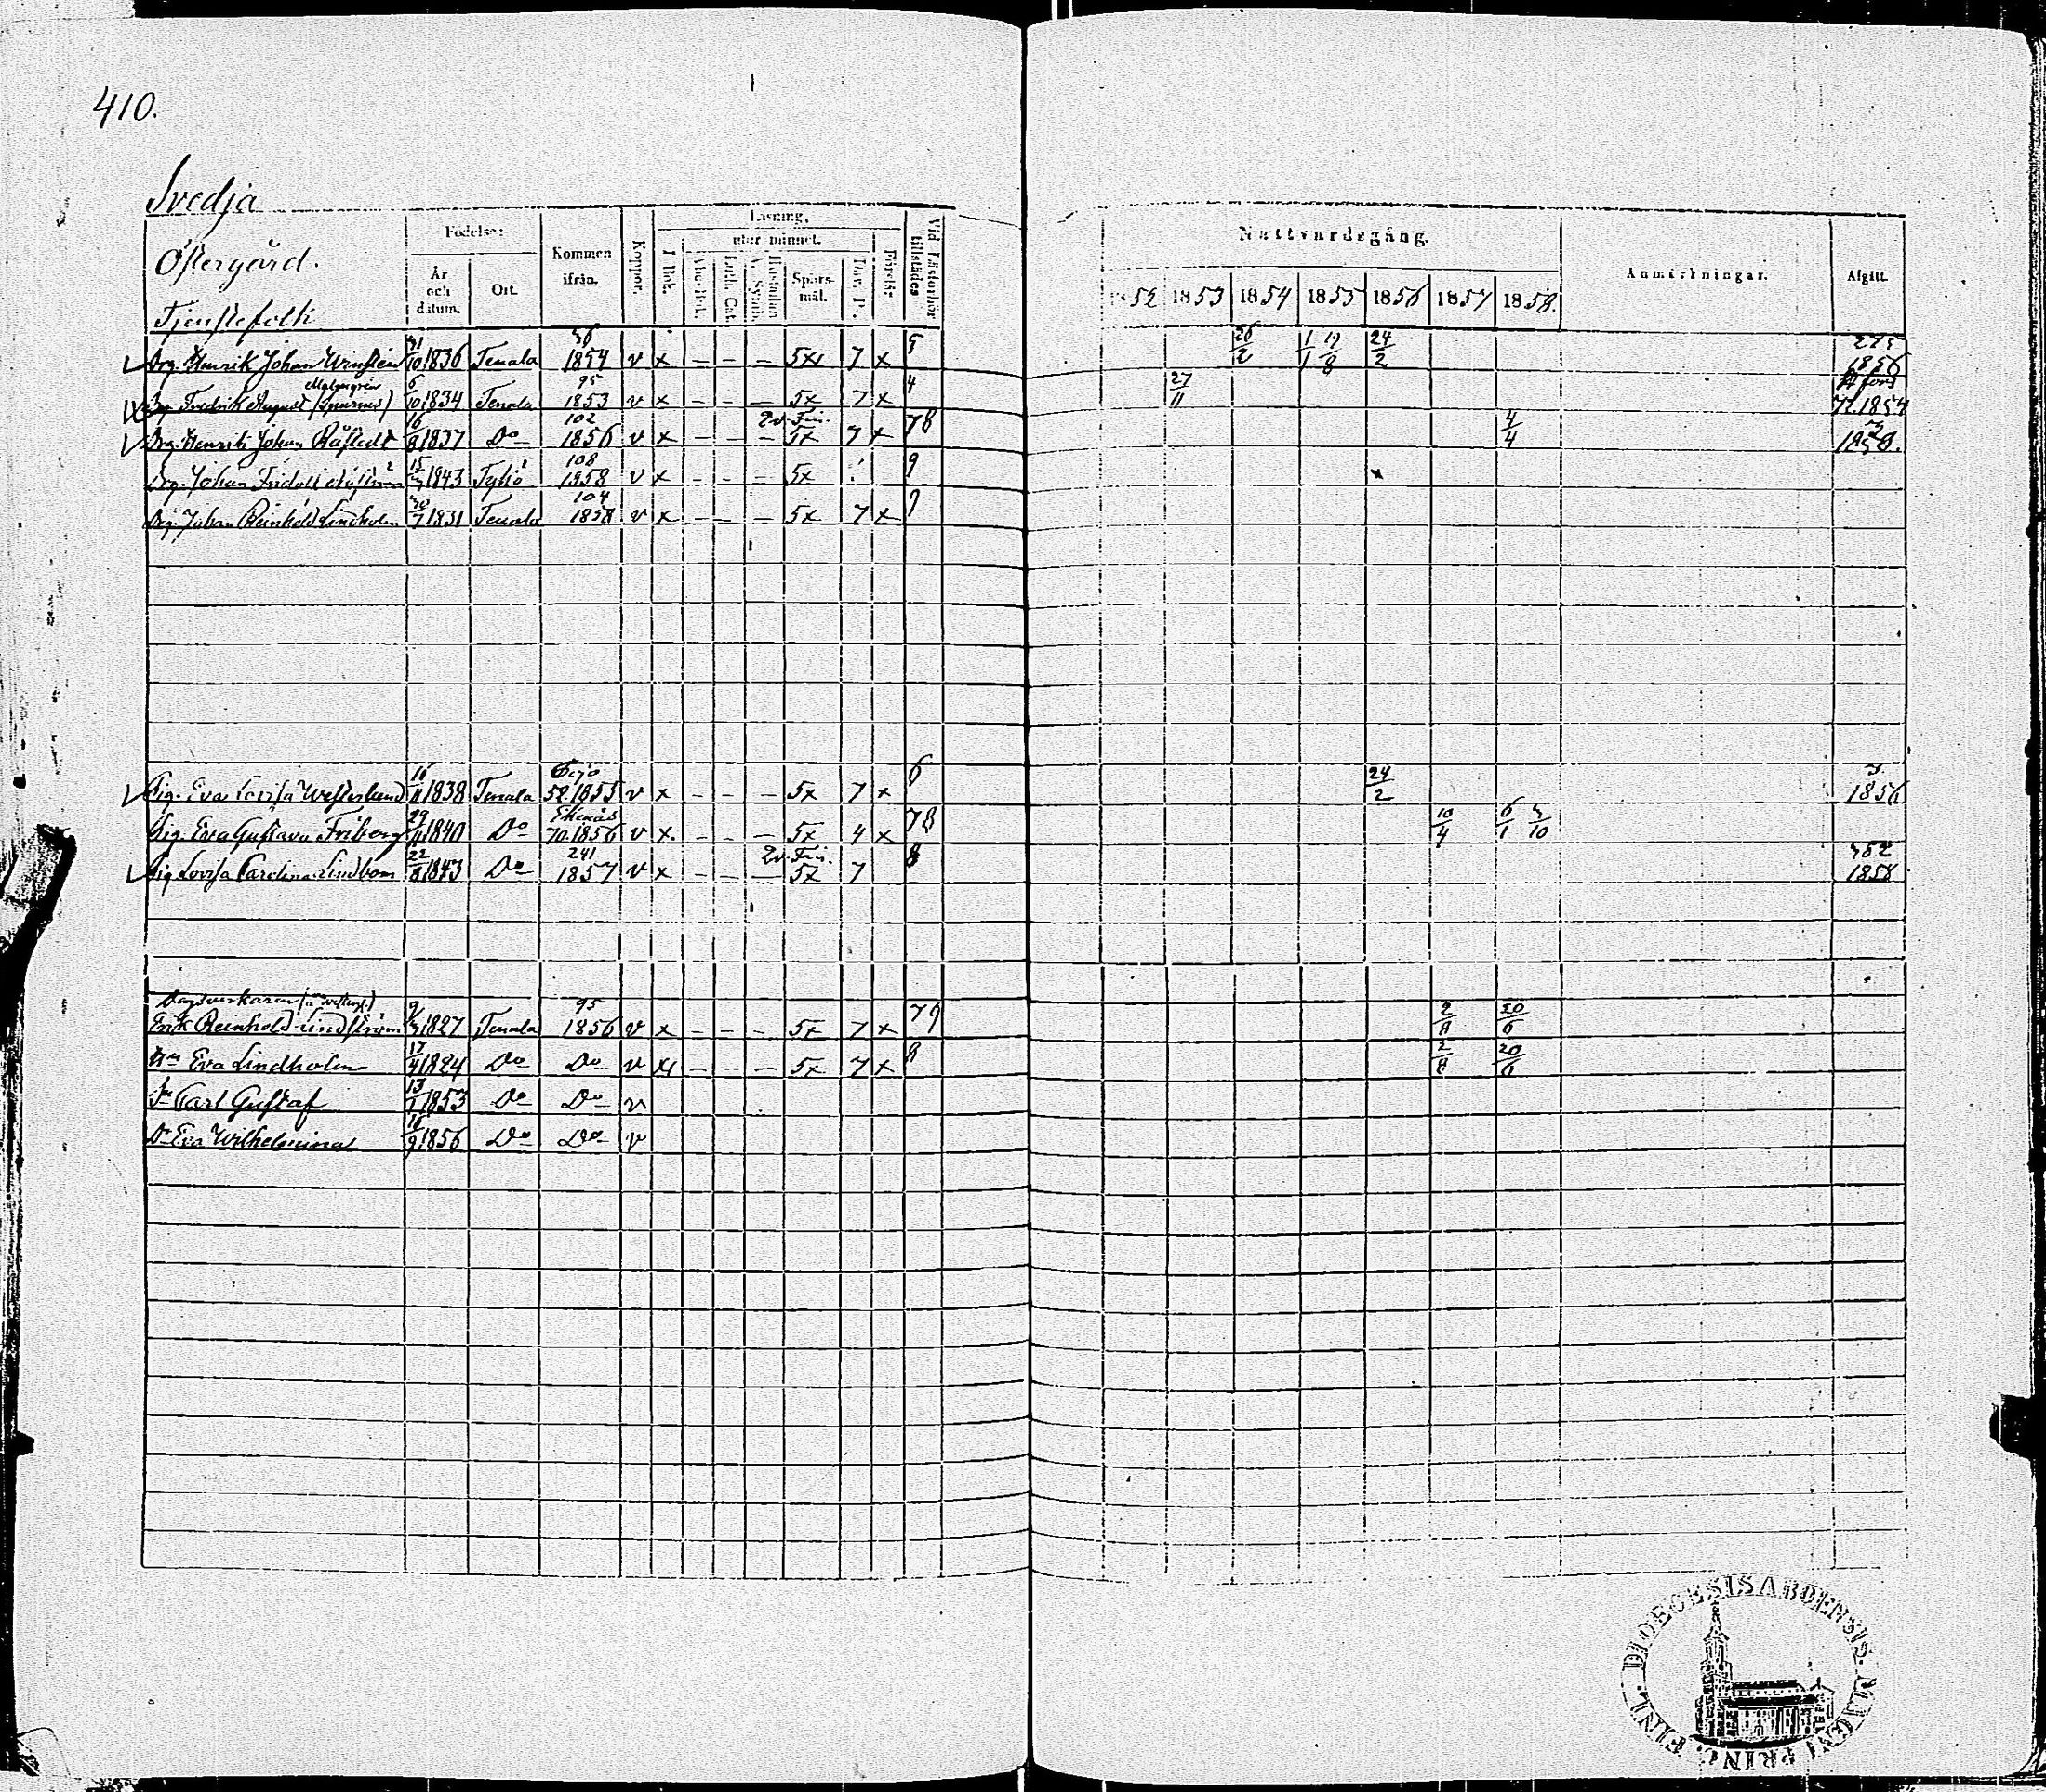 410.
Svedja
Östergård.
Tjenstefolk
Födelse:
År och datum.
Ort.
Kommen ifrån.
Koppor.
Läsning,
I Bok.
utur minnet.
Abc-Bok.
Luth. Cat.
Hustaflan A. Symb.
Spörs-mål.
Dav. P.
Förstår
Vid Läsförhör tillstädes
Nattvardsgång.
1852 1853 1854 1855 1856 1857 1858.
Anmärkningar.
Afgått.
Drg. Henrik Johan 31/10 1836 Tenala 1854 v x - - - 5x 7 x 5 26/2 1/1 24/2 1856
Drg. Fredrik August Malmgren 6/10 1834 Tenala 95 1853 v x - - - 5x 7 x 4 27/11 77.1854
Drg. Henrik Johan 16/8 1837 Do 102 1856 v x - - - 5x 7 x 78 4/4 1858.
Drg. Johan Fridolf 1843 Tykö 108 1858 v x - - - 5x 9
Drg. Johan Reinhold Lindholm 30/7 1831 Tenala 104 1858 v x - - - 5x 7 x 9
Pig. Eva Lovisa Westerlund 16/11 1838 Tenala 52.1855 v x - - - 5x 7 x 6 24/2 1856
Pig. Eva Gustava Friberg 29/11 1840 Do Ekenäs 70.1856 v x. - - - 5x 4 x 78 10/4 6/1 5/10
Pig. Lovisa Carolina Lindbom 22/8 1843 Do 241 1857 v x - - - 5x 7 8 352 1858
Dagsverkaren
Erik Reinhold Lindström 1827 Tenala 95 1856 v x - - - 5x 7 x 79 2/8 20/6
Hu Eva Lindholm 17/4 1824 Do Do v x - - - 5x 7 x 8 2/8 20/6
Sn Carl Gustaf 13/1 1853 Do Do v
Dr Eva Wilhelmina 16/9 1856 Do Do v
DIOECESIS ABOENSIS. MAGNI PRINC. FINL.